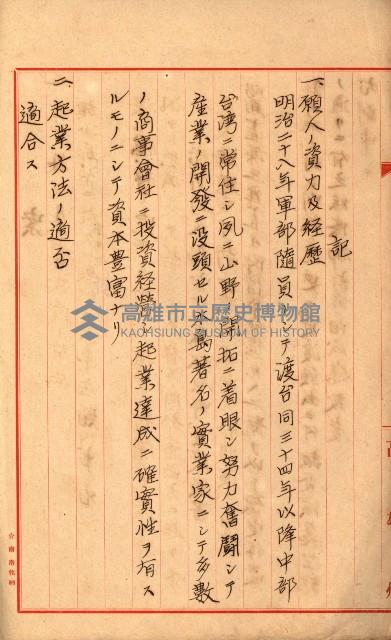 記
一、願人ノ資力及経歴
明治二十八年軍部隨員トシテ渡台同三十四年以降中部
台湾ニ常住シ夙ニ山野開拓ニ着眼シ努力奮闘シテ
産業ノ開發ニ没頭セル本島著名ノ實業家ニシテ多數
ノ商事會社ニ投資経營シ起業達成ニ確實性ヲ有ス
ルモノニシテ資本豊富ナリ
二、起業方法ノ適否
適合ス
高雄市立歷史博物館
KAOHSIUNG MUSEUM OF HISTORY